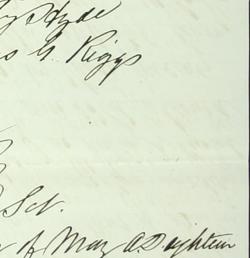 Hyde
G. Riggs
Sct.
of May A. Deighten